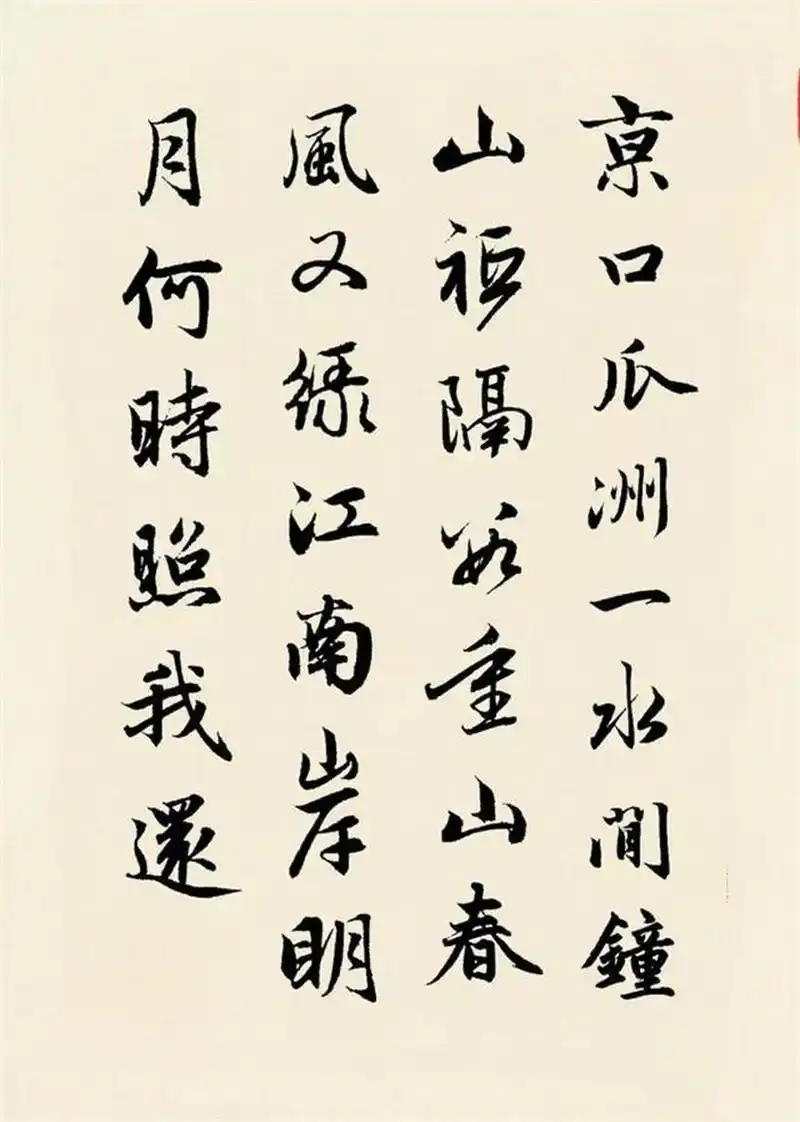 京口瓜洲一水間鐘
山祗隔數重山春
風又綠江南岸明
月何時照我還